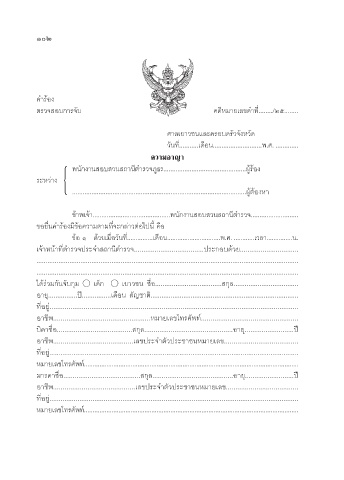 ๑๐๒
คำร้อง
ตรวจสอบการจับ คดีหมายเลขดำที่........./๒๕........
ศาลเยาวชนและครอบครัวจังหวัด
วันที่...........เดือน...........................พ.ศ. .............
ความอาญา
พนักงานสอบสวนสถานีตำรวจภูธร.............................................ผู้ร้อง
ระหว่าง
.............................................................................................ผู้ต้องหา
ข้าพเจ้า...........................................พนักงานสอบสวนสถานีตำรวจ..........................
ขอยื่นคำร้องมีข้อความตามที่จะกล่าวต่อไปนี้ คือ
ข้อ ๑ ด้วยเมื่อวันที่..............เดือน.............................พ.ศ. ............เวลา..............น.
เจ้าหน้าที่ตำรวจประจำสถานีตำรวจ......................................ประกอบด้วย................................
..............................................................................................................................................
..............................................................................................................................................
ได้ร่วมกันจับกุม ○ เด็ก ○ เยาวชน ชื่อ.....................................สกุล...................................
อายุ...............ปี...............เดือน สัญชาติ................................................................................
ที่อยู่.......................................................................................................................................
อาชีพ.....................................................หมายเลขโทรศัพท์......................................................
บิดาชื่อ.........................................สกุล................................................อายุ...........................ปี
อาชีพ............................................เลขประจำตัวประชาชนหมายเลข.........................................
ที่อยู่.......................................................................................................................................
หมายเลขโทรศัพท์....................................................................................................................
มารดาชื่อ...........................................สกุล.............................................อายุ...........................ปี
อาชีพ.............................................เลขประจำตัวประชาชนหมายเลข........................................
ที่อยู่.......................................................................................................................................
หมายเลขโทรศัพท์....................................................................................................................